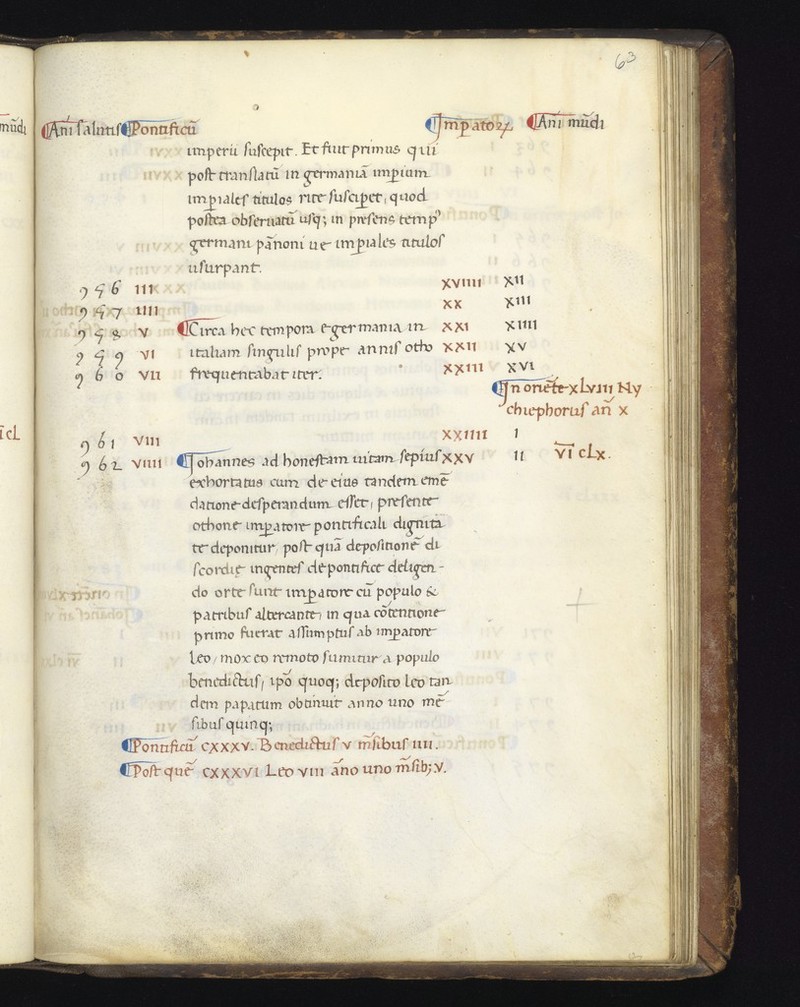 63
Ani salutis Pontificū Impatorꝝ Ani mūdi
imperii suscepit. Et fuit primus qui
post translatū in germaniā impium
impiales titulos rite susciperet, quod
postea obseruatū usq; in presens temp9
germani pānoni ue impiales titulos
usurpant.
956 III XVIIII XII
957 IIII XX XIII
958 V Circa hec tempora e germania in XXI XIIII
959 VI italiam singulis prope annis otho XXII XV
960 VII frequentabat iter. XXIII XVI
In oriēte XLVIII Ny
chiephorus an̄ X
961 VIII XXIIII I
962 VIIII Iohannes ad honestam uitam sepius XXV II VI CLX.
exhortatus cum de eius tandem emē
datione desperandum esset, presente
othone impatore pontificali dignita
te deponitur, post quā depositionē di
scordie ingentes de pontifice deligen-
do orte sunt impatore cū populo &
patribus altercante, in qua cōtentione
primo fuerat assumptus ab impatore
Leo, mox eo remoto sumitur a populo
benedictus, ipō quoq; deposito Leo tan
dem papatum obtinuit anno uno mē
sibus quinq;
Pontificū CXXXV. Benedictus V m̄sibus IIII.
Post quē CXXXVI Leo VIII an̄o uno m̄sib; V.